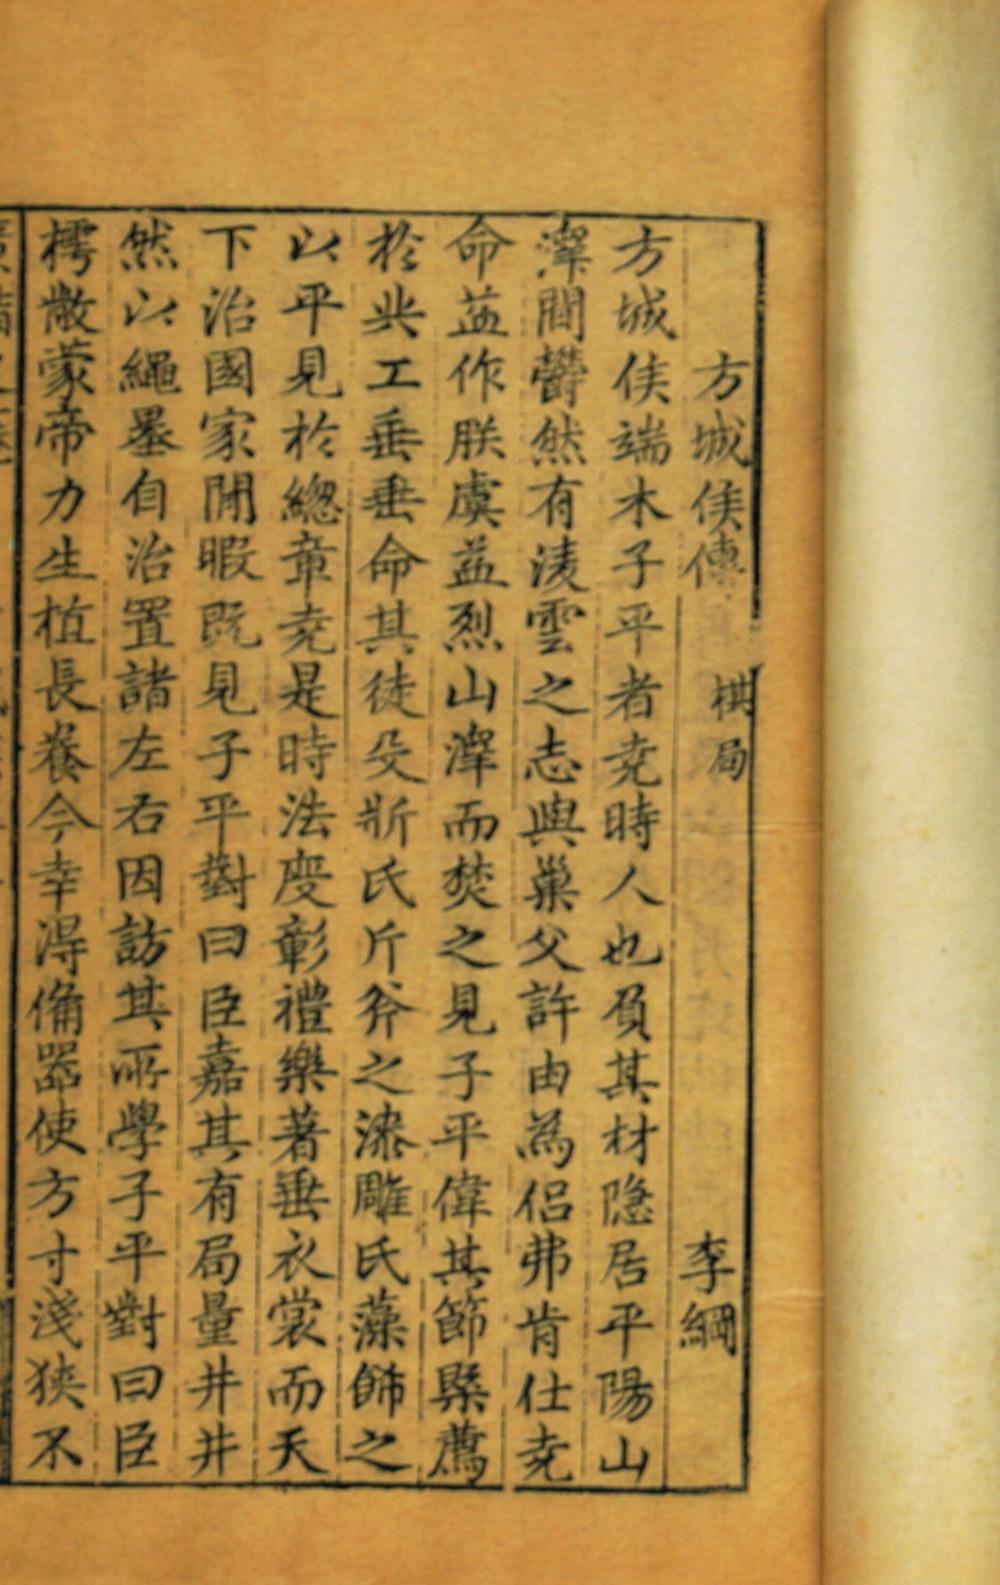 方城侯傳 棋局 李綱
方城侯端木子平者堯時人也負其材隱居平陽山
澤間欝然有淩雲之志與巢父許由為侣弗肯仕堯
命益作朕虞益烈山澤而焚之見子平偉其節槩薦
於共工垂垂命其徒殳斨氏斤斧之漆雕氏藻飾之
以平見於總章堯是時法度彰禮樂著垂衣裳而天
下治國家閒暇既見子平對曰臣嘉其有局量井井
然以繩墨自治置諸左右因訪其所學子平對曰臣
樗散蒙帝力生植長養今幸得備器使方寸淺狹不